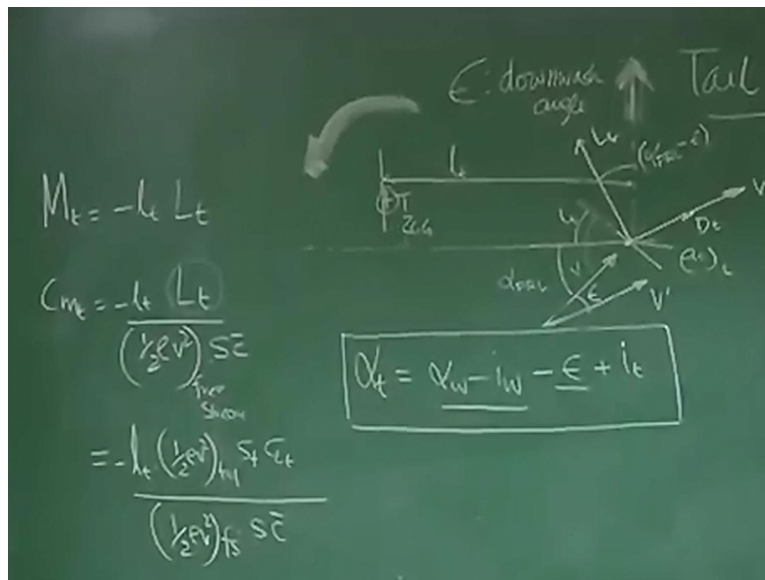 ϵ: downwash angle
Tail
l_t
(α_FRL - ϵ)
L_t
Z_CG
D_t
α_FRL
V
ϵ
V'
M_t = -l_t L_t
C_m_t = -l_t L_t / (½ρv²)_free stream S c̄
= -l_t (½ρv²)_tail S_t C_L_t / (½ρv²)_fs S c̄
α_t = α_w - i_w - ϵ + i_t